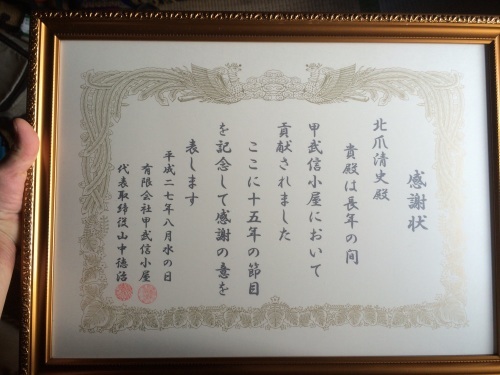 感謝状
北爪清史殿
貴殿は長年の間
甲武信小屋において
貢献されました
ここに十五年の節目
を記念して感謝の意を
表します
平成二七年八月水の日
有限会社甲武信小屋
代表取締役山中徳治